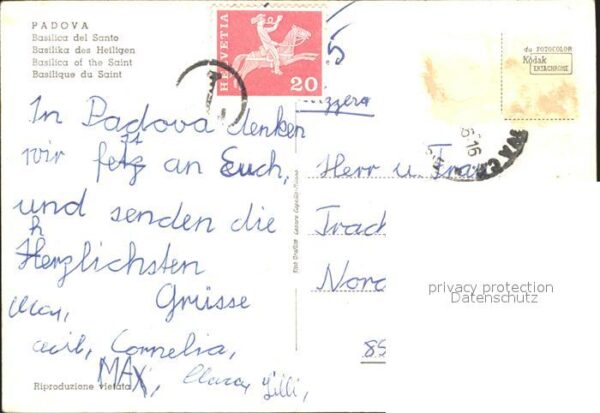 PADOVA
Basilica del Santo
Basilika des Heiligen
Basilica of the Saint
Basilique du Saint
HELVETIA
20
5
du FOTOCOLOR
Kodak
EKTACHROME
Svizzera
In Padova denken
wir jetzt an Euch,
und senden die
Herzlichsten
Grüsse
Max,
Cornelia,
MAX,
Clara, Lilli,
Herr u. Frau
Trach
Nord
85
16
privacy protection
Datenschutz
Riproduzione vietata